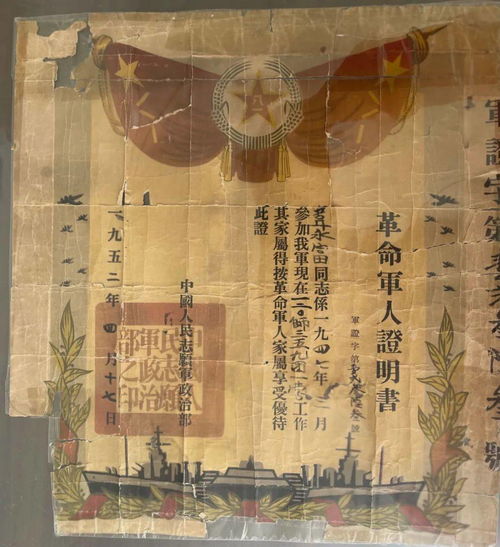 軍證字第號
八一
革命軍人證明書
軍證字第號
永富同志係一九四七年二月
參加我軍現在一二〇師三五九團一營工作
其家屬得按革命軍人家屬享受優待
此證
中國人民志願軍政治部
一九五二年四月十七日
中國人
民志願
軍政治
部之印